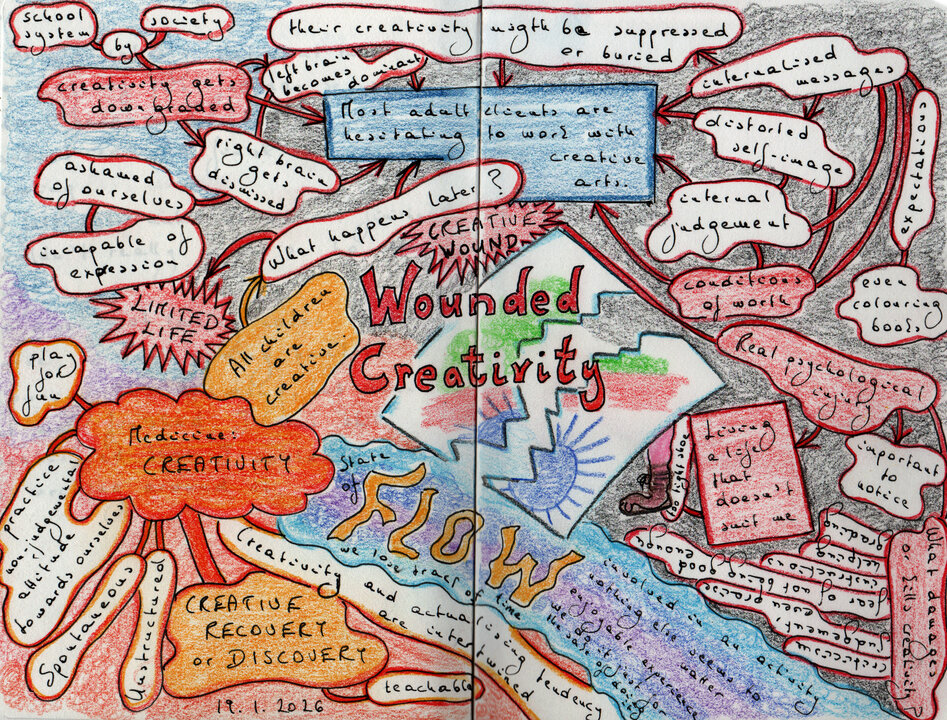 school
system
by
society
their creativity might be suppressed
or buried
creativity gets
downgraded
left brain
becomes dominant
Most adult clients are
hesitating to work with
creative
arts.
internalised
messages
distorted
self-image
expectations
right brain
gets
dismissed
ashamed
of ourselves
incapable of
expression
What happens later?
CREATIVE
WOUND
internal
judgement
conditions
of worth
even
colouring
books
LIMITED
LIFE
All children
are
creative.
Wounded
Creativity
Real psychological
injury
important
to
notice
play
for
fun
Medicine:
CREATIVITY
practice
non-judgemental
attitude
towards ourselves
Spontaneous
Unstructured
CREATIVE
RECOVERY
or DISCOVERY
teachable
Creativity and actualising tendency
are intertwined
State
of
FLOW
we lose track
of time
involved in an activity
nothing else seems to
matter
enjoyable experience
we do it for
the sake of doing
too tight shoe
Living
a life
that
doesn't
suit me
What damages
or kills creativity?
criticism
judgement
even praising
fear of not being good enough
instructing
grading
19. 1. 2026